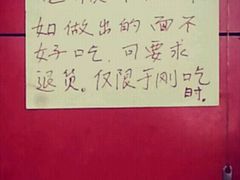 如做出的面不
好吃，可要求
退货。仅限于刚吃
时.